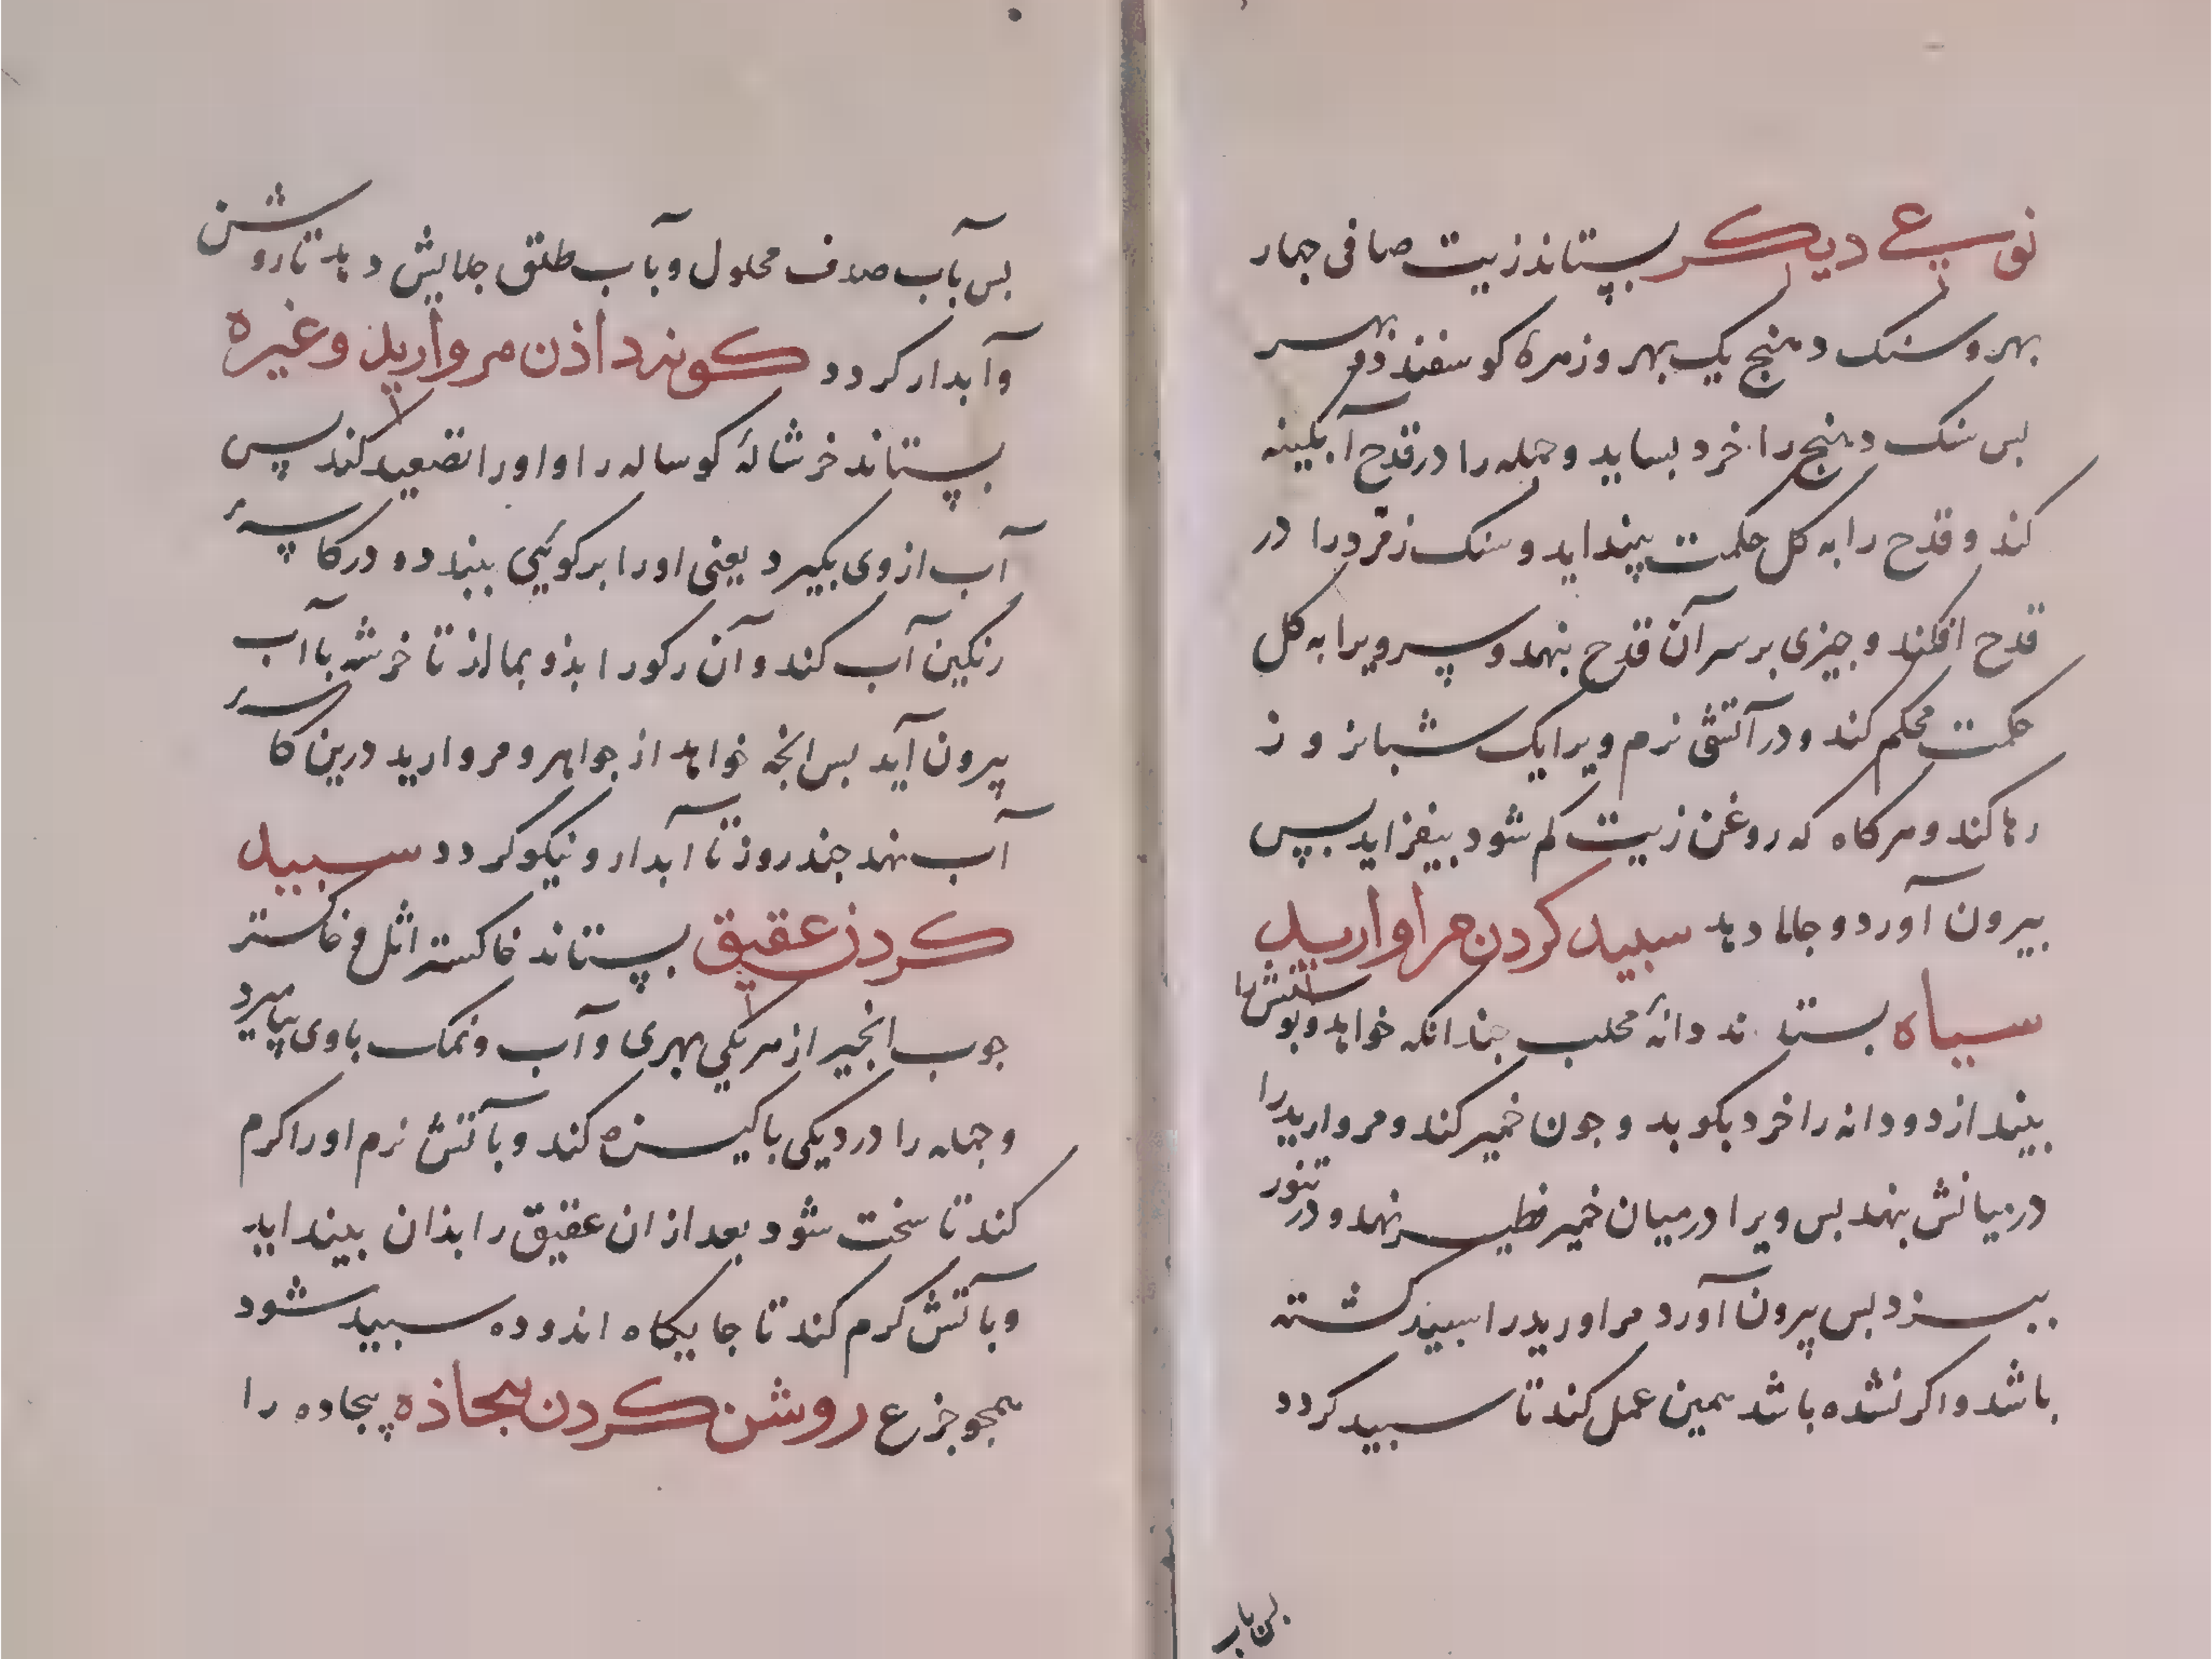 نوعی دیکر بستاند زیت صافی جهار
بهر و سنک دهنج یک بهر و زهرهٔ کوسفند دو بهر
بس سنک دهنج را خرد بساید و جمله را در قدح آبکینه
کند و قدح را به کل حکمت بینداید و سنک زمرد را در
قدح افکند و جیزی بر سر آن قدح بنهد و سر ویرا به کل
حکمت محکم کند و در آتشی نرم ویرا یک شبانه و ز
رها کند و هر کاه که روغن زیت کم شود بیفزاید بس
بیرون آورد و جلا دهد سبید کردن مراوارید
سیاه بستاند دانهٔ محلب جندانکه خواهد و بوستش را
بیندازد و دانه را خرد بکوبد و جون خمیر کند و مروارید را
در میانش نهد بس ویرا در میان خمیر فطیر نهد و در تنور
ببزد بس بیرون آورد مراورید را سبید کشته
باشد و اکر نشده باشد همین عمل کند تا سبید کردد
بس باب
بس بآب صدف محلول و بآب طلق جلایش دهد تا روشن
و آبدار کردد کونه دادن مروارید و غیره
بستاند خرشالهٔ کوساله را و او را تصعید کند پس
آب از وی بکیرد یعنی او را بر کوئیی ببندد و در کاسهٔ
رنکین آب کند و آن رکو را بذو بمالذ تا خرشه با آب
بیرون آید بس انجه خواهد از جواهر و مروارید درین کاسهٔ
آب نهد جند روز تا آبدار و نیکو کردد سبید
کردن عقیق بستاند خاکستر اثل و خاکستر
جوب انجیر از هر یکی بهری و آب و نمک با وی بیامیزد
و جمله را در دیکی باکیزه کند و بآتش نرم او را کرم
کند تا سخت شود بعد از ان عقیق را بذان بینداید
و بآتش کرم کند تا جایکاه اندوده سبید شود
همجو جزع روشن کردن بیجاذه بیجاده را